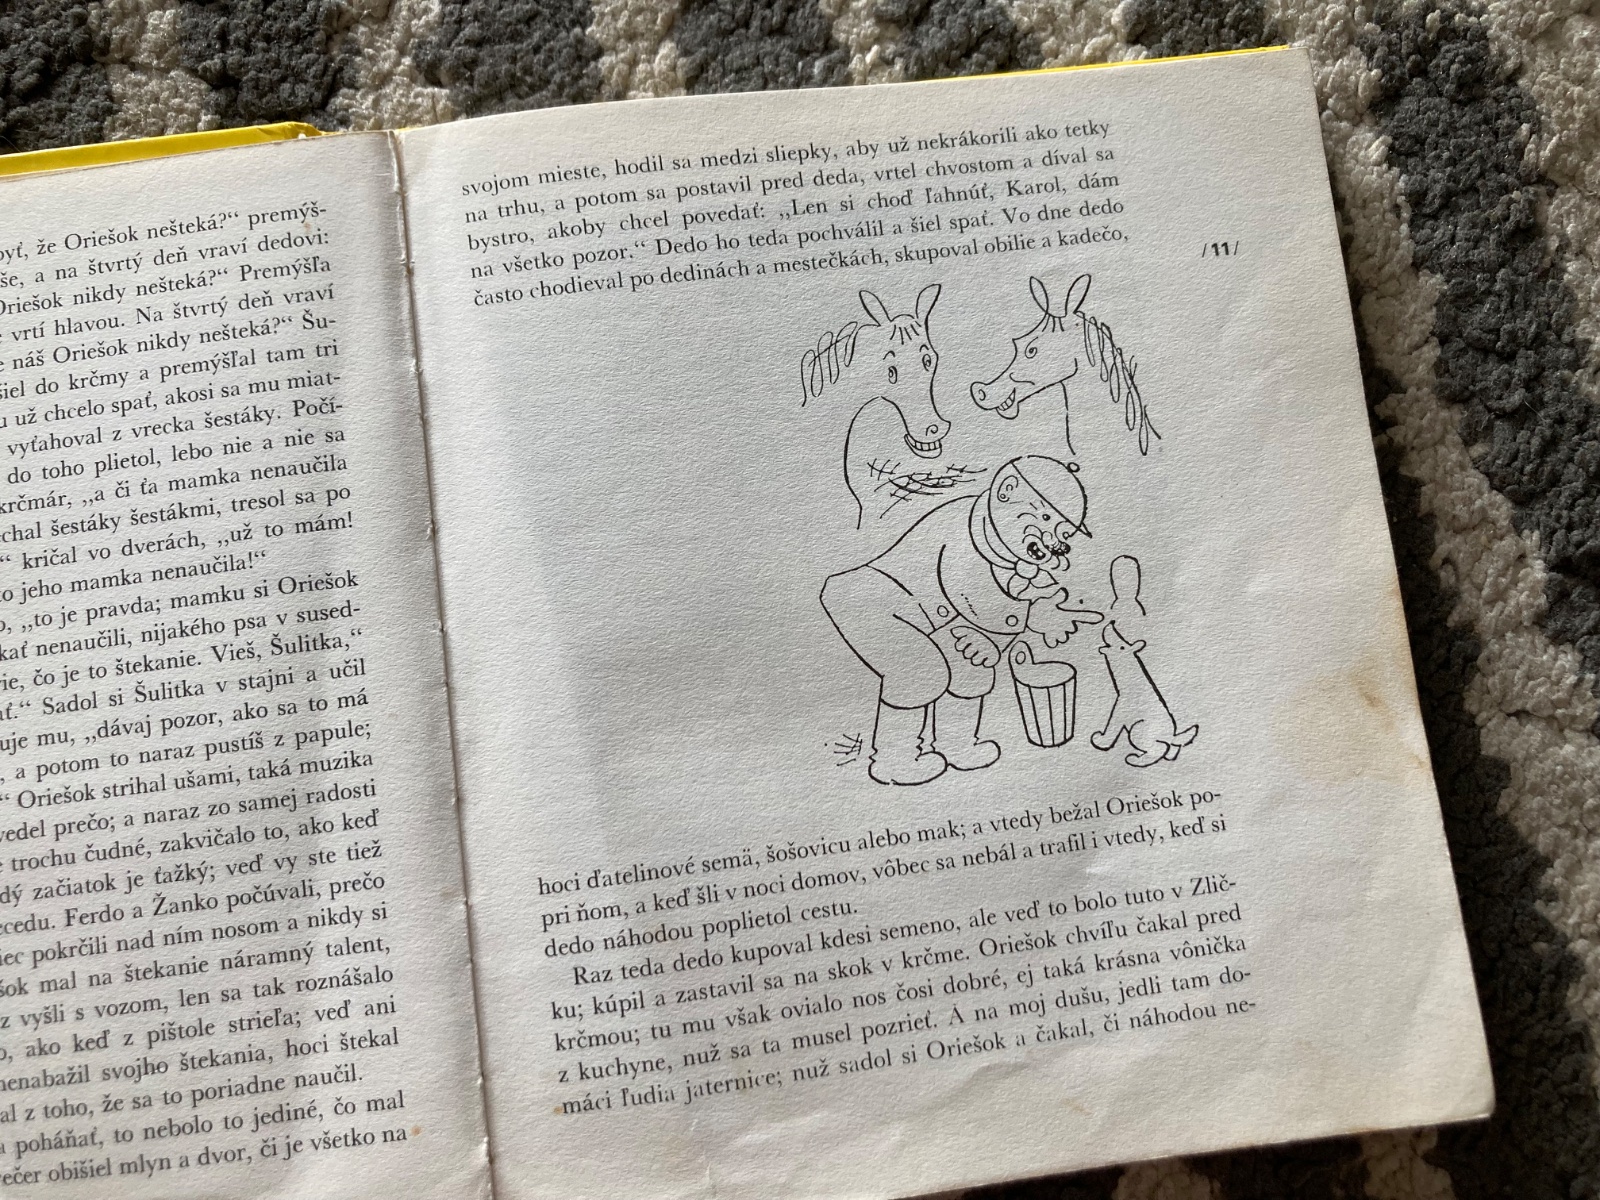 byť, že Oriešok nešteká?“ premýš-
še, a na štvrtý deň vraví dedovi:
Oriešok nikdy nešteká?“ Premýšľa
vrtí hlavou. Na štvrtý deň vraví
náš Oriešok nikdy nešteká?“ Šu-
šiel do krčmy a premýšľal tam tri
už chcelo spať, akosi sa mu miat-
vyťahoval z vrecka šestáky. Počí-
do toho plietol, lebo nie a nie sa
krčmár, „a či ťa mamka nenaučila
chal šestáky šestákmi, tresol sa po
“ kričal vo dverách, „už to mám!
to jeho mamka nenaučila!“
„to je pravda; mamku si Oriešok
kať nenaučili, nijakého psa v sused-
rie, čo je to štekanie. Vieš, Šulitka,“
ať.“ Sadol si Šulitka v stajni a učil
uje mu, „dávaj pozor, ako sa to má
, a potom to naraz pustíš z papule;
“ Oriešok strihal ušami, taká muzika
vedel prečo; a naraz zo samej radosti
trochu čudné, zakvičalo to, ako keď
dý začiatok je ťažký; veď vy ste tiež
ecedu. Ferdo a Žanko počúvali, prečo
iec pokrčili nad ním nosom a nikdy si
šok mal na štekanie náramný talent,
z vyšli s vozom, len sa tak roznášalo
o, ako keď z pištole strieľa; veď ani
nenabažil svojho štekania, hoci štekal
al z toho, že sa to poriadne naučil.
poháňať, to nebolo to jediné, čo mal
ečer obišiel mlyn a dvor, či je všetko na
svojom mieste, hodil sa medzi sliepky, aby už nekrákorili ako tetky
na trhu, a potom sa postavil pred deda, vrtel chvostom a díval sa
bystro, akoby chcel povedať: „Len si choď ľahnúť, Karol, dám
na všetko pozor.“ Dedo ho teda pochválil a šiel spať. Vo dne dedo
často chodieval po dedinách a mestečkách, skupoval obilie a kadečo,
/11/
hoci ďatelinové semä, šošovicu alebo mak; a vtedy bežal Oriešok po-
pri ňom, a keď šli v noci domov, vôbec sa nebál a trafil i vtedy, keď si
dedo náhodou poplietol cestu.
Raz teda dedo kupoval kdesi semeno, ale veď to bolo tuto v Zlič-
ku; kúpil a zastavil sa na skok v krčme. Oriešok chvíľu čakal pred
krčmou; tu mu však ovialo nos čosi dobré, ej taká krásna vônička
z kuchyne, nuž sa ta musel pozrieť. A na moj dušu, jedli tam do-
máci ľudia jaternice; nuž sadol si Oriešok a čakal, či náhodou ne-